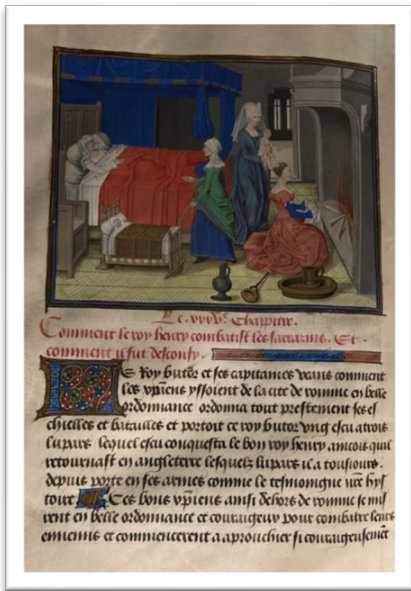 Le xxxve. Chappitre.
Comment le roy henry combatist les sarrazins. Et
comment il fut desconfy.
Le Roy butor et ses capitaines veans comment
les xpiens yssoient de la cite de romme en belle
ordonnance ordonna tout prestement ses es
chielles et batailles et portoit ce roy butor ung escu a trois
lupars lequel escu conquesta le bon roy henry ainçois quil
retournast en angleterre lesquelz lupars il a tousiours
depuis porte en ses armes comme le tesmoingne nre hys
toire Ces bons xpiens ainsi dehors de romme se mis
rent en belle ordonnance et couraigeux pour combatre leurs
ennemis et commencerent a aprouchier si couraigeusement